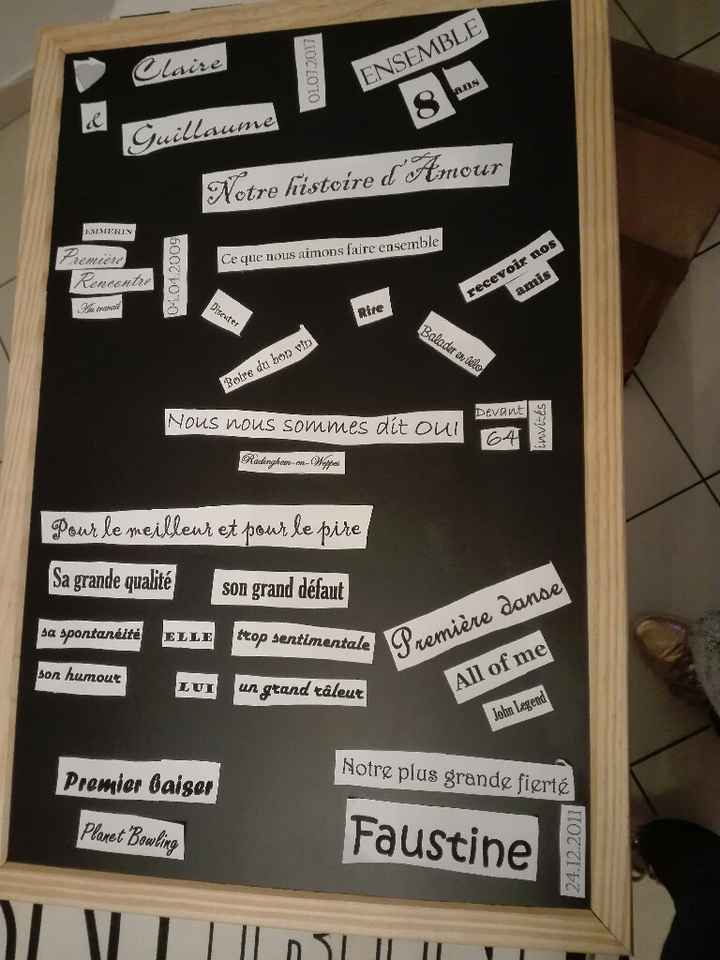 Claire
&
Guillaume
01.07.2017
ENSEMBLE
8 ans
Notre histoire d'Amour
EMMERIN
Première
Rencontre
Au travail
04.04.2009
Ce que nous aimons faire ensemble
recevoir nos
amis
Discuter
Rire
Boire du bon vin
Balader en vélo
Nous nous sommes dit OUI
Devant
64
invités
Radinghem-en-Weppes
Pour le meilleur et pour le pire
Sa grande qualité
son grand défaut
sa spontanéité
ELLE
trop sentimentale
son humour
LUI
un grand râleur
Première danse
All of me
John Legend
Premier baiser
Planet'Bowling
Notre plus grande fierté
Faustine
24.12.2011